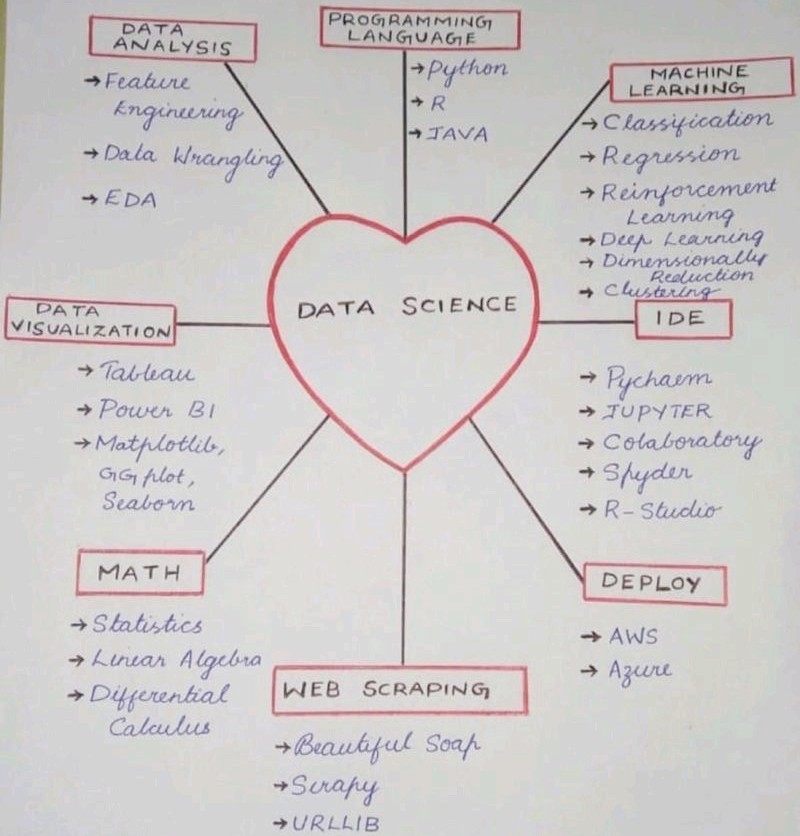 DATA
ANALYSIS
→ Feature
Engineering
→ Data Wrangling
→ EDA
PROGRAMMING
LANGUAGE
→ Python
→ R
→ JAVA
MACHINE
LEARNING
→ Classification
→ Regression
→ Reinforcement
Learning
→ Deep Learning
→ Dimensionally
Reduction
→ Clustering
DATA SCIENCE
DATA
VISUALIZATION
→ Tableau
→ Power BI
→ Matplotlib,
GG plot,
Seaborn
IDE
→ Pycharm
→ JUPYTER
→ Colaboratory
→ Spyder
→ R-Studio
MATH
→ Statistics
→ Linear Algebra
→ Differential
Calculus
DEPLOY
→ AWS
→ Azure
WEB SCRAPING
→ Beautiful Soap
→ Scrapy
→ URLLIB